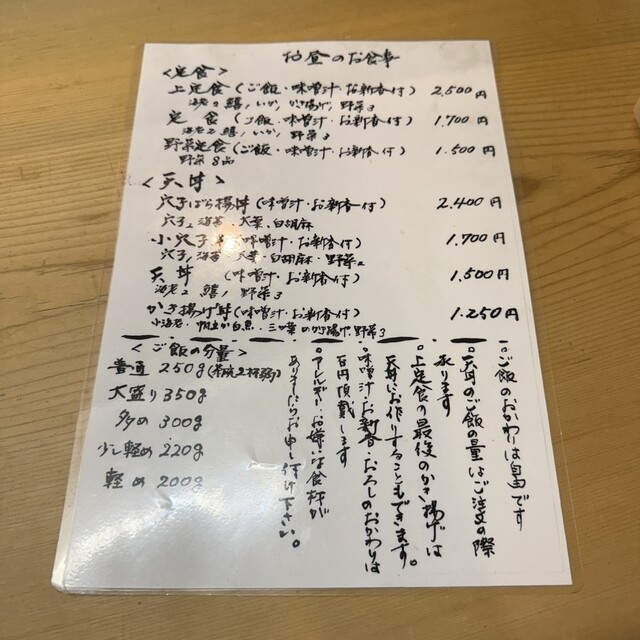 お昼のお食事
<定食>
上定食(ご飯・味噌汁・お新香付) 2,500円
海老2 鱚1 いか1 かき揚げ1 野菜3
定食(ご飯・味噌汁・お新香付) 1,700円
海老2 鱚1 いか1 野菜3
野菜定食(ご飯・味噌汁・お新香付) 1,500円
野菜8品
<天丼>
穴子ばら揚丼(味噌汁・お新香付) 2,400円
穴子2 海苔 大葉 白胡麻
小穴子丼(味噌汁・お新香付) 1,700円
穴子1 海苔 大葉・白胡麻・野菜2
天丼(味噌汁・お新香付) 1,500円
海老2 鱚1 野菜3
かき揚げ丼(味噌汁・お新香付) 1,250円
小海老・帆立か白魚・三つ葉のかき揚げ・野菜3
<ご飯の分量>
普通 250g(茶碗2杯弱)
大盛り 350g
多め 300g
少し軽め 220g
軽め 200g
一。ご飯のおかわりは自由です
・天丼のご飯の量はご注文の際
承ります
・上定食の最後のかき揚げは
天丼にお作りすることもできます。
・味噌汁・お新香・おろしのおかわりは
百円頂戴します
・アレルギー・お嫌いな食材が
ありましたらお申し付け下さい。